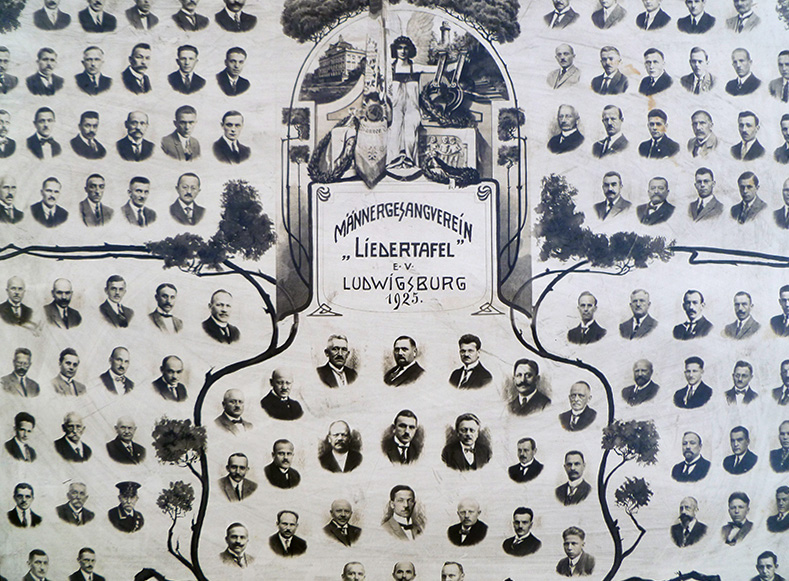 MÄNNERGESANGVEREIN
„LIEDERTAFEL"
E.V.
LUDWIGSBURG
1925.